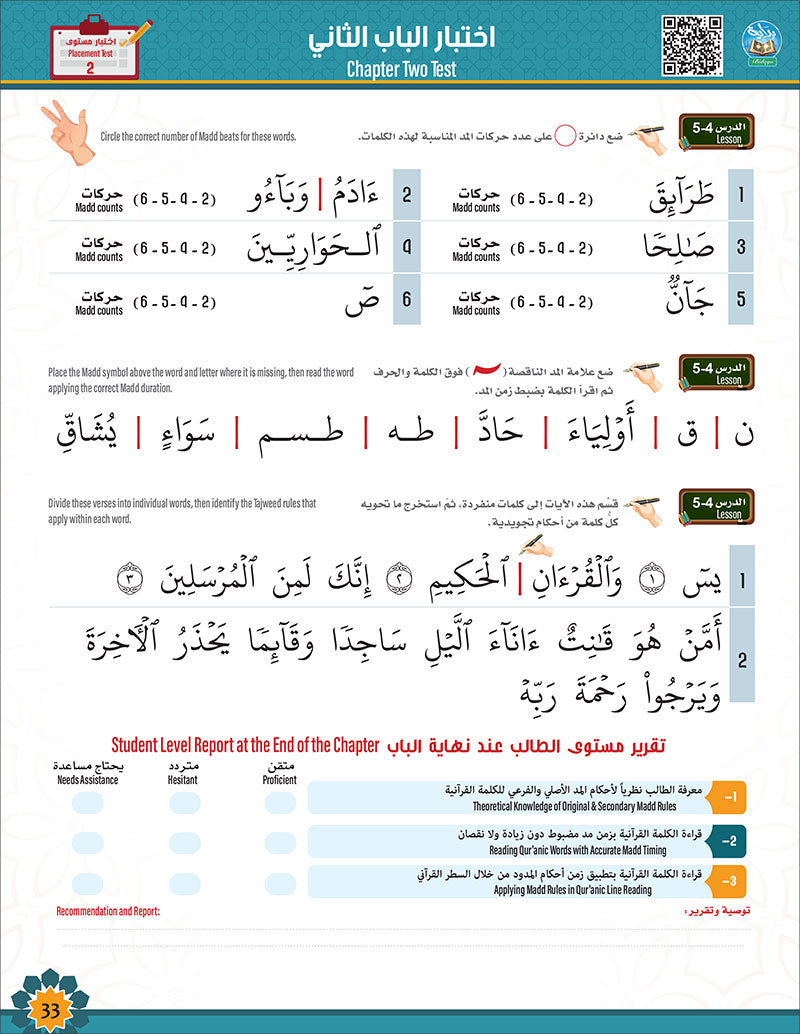 اختبار مستوى
Placement Test
2
اختبار الباب الثاني
Chapter Two Test
بداية
Bidaya
الدرس 4-5
Lesson
ضع دائرة على عدد حركات المد المناسبة لهذه الكلمات.
Circle the correct number of Madd beats for these words.
1 طَرَآئِقَ (2 - 4 - 5 - 6) حركات Madd counts
2 ءَادَمُ | وَبَآءُو (2 - 4 - 5 - 6) حركات Madd counts
3 صَٰلِحًا (2 - 4 - 5 - 6) حركات Madd counts
4 ٱلْحَوَارِيِّـينَ (2 - 4 - 5 - 6) حركات Madd counts
5 جَآنٌّ (2 - 4 - 5 - 6) حركات Madd counts
6 صٓ (2 - 4 - 5 - 6) حركات Madd counts
الدرس 4-5
Lesson
ضع علامة المد الناقصة ( ٓ ) فوق الكلمة والحرف
ثم اقرأ الكلمة بضبط زمن المد.
Place the Madd symbol above the word and letter where it is missing, then read the word
applying the correct Madd duration.
ن | ق | أَوْلِيَاءَ | حَادَّ | طـه | طـسـم | سَوَاءٍ | يُشَاقِّ
الدرس 4-5
Lesson
قسّم هذه الآيات إلى كلمات منفردة، ثمّ استخرج ما تحويه
كلُّ كلمة من أحكام تجويدية.
Divide these verses into individual words, then identify the Tajweed rules that
apply within each word.
1 يسٓ ١ وَٱلْقُرْءَانِ | ٱلْحَكِيمِ ٢ إِنَّكَ لَمِنَ ٱلْمُرْسَلِينَ ٣
2 أَمَّنْ هُوَ قَـٰنِتٌ ءَانَآءَ ٱلَّيْلِ سَاجِدًا وَقَآئِمًا يَحْذَرُ ٱلْـَٔاخِرَةَ
وَيَرْجُوا۟ رَحْمَةَ رَبِّهِۦ
تقرير مستوى الطالب عند نهاية الباب Student Level Report at the End of the Chapter
متقن
Proficient
متردد
Hesitant
يحتاج مساعدة
Needs Assistance
1- معرفة الطالب نظرياً لأحكام المد الأصلي والفرعي للكلمة القرآنية
Theoretical Knowledge of Original & Secondary Madd Rules
2- قراءة الكلمة القرآنية بزمن مد مضبوط دون زيادة ولا نقصان
Reading Qur'anic Words with Accurate Madd Timing
3- قراءة الكلمة القرآنية بتطبيق زمن أحكام المدود من خلال السطر القرآني
Applying Madd Rules in Qur'anic Line Reading
توصية وتقرير:
Recommendation and Report:
33